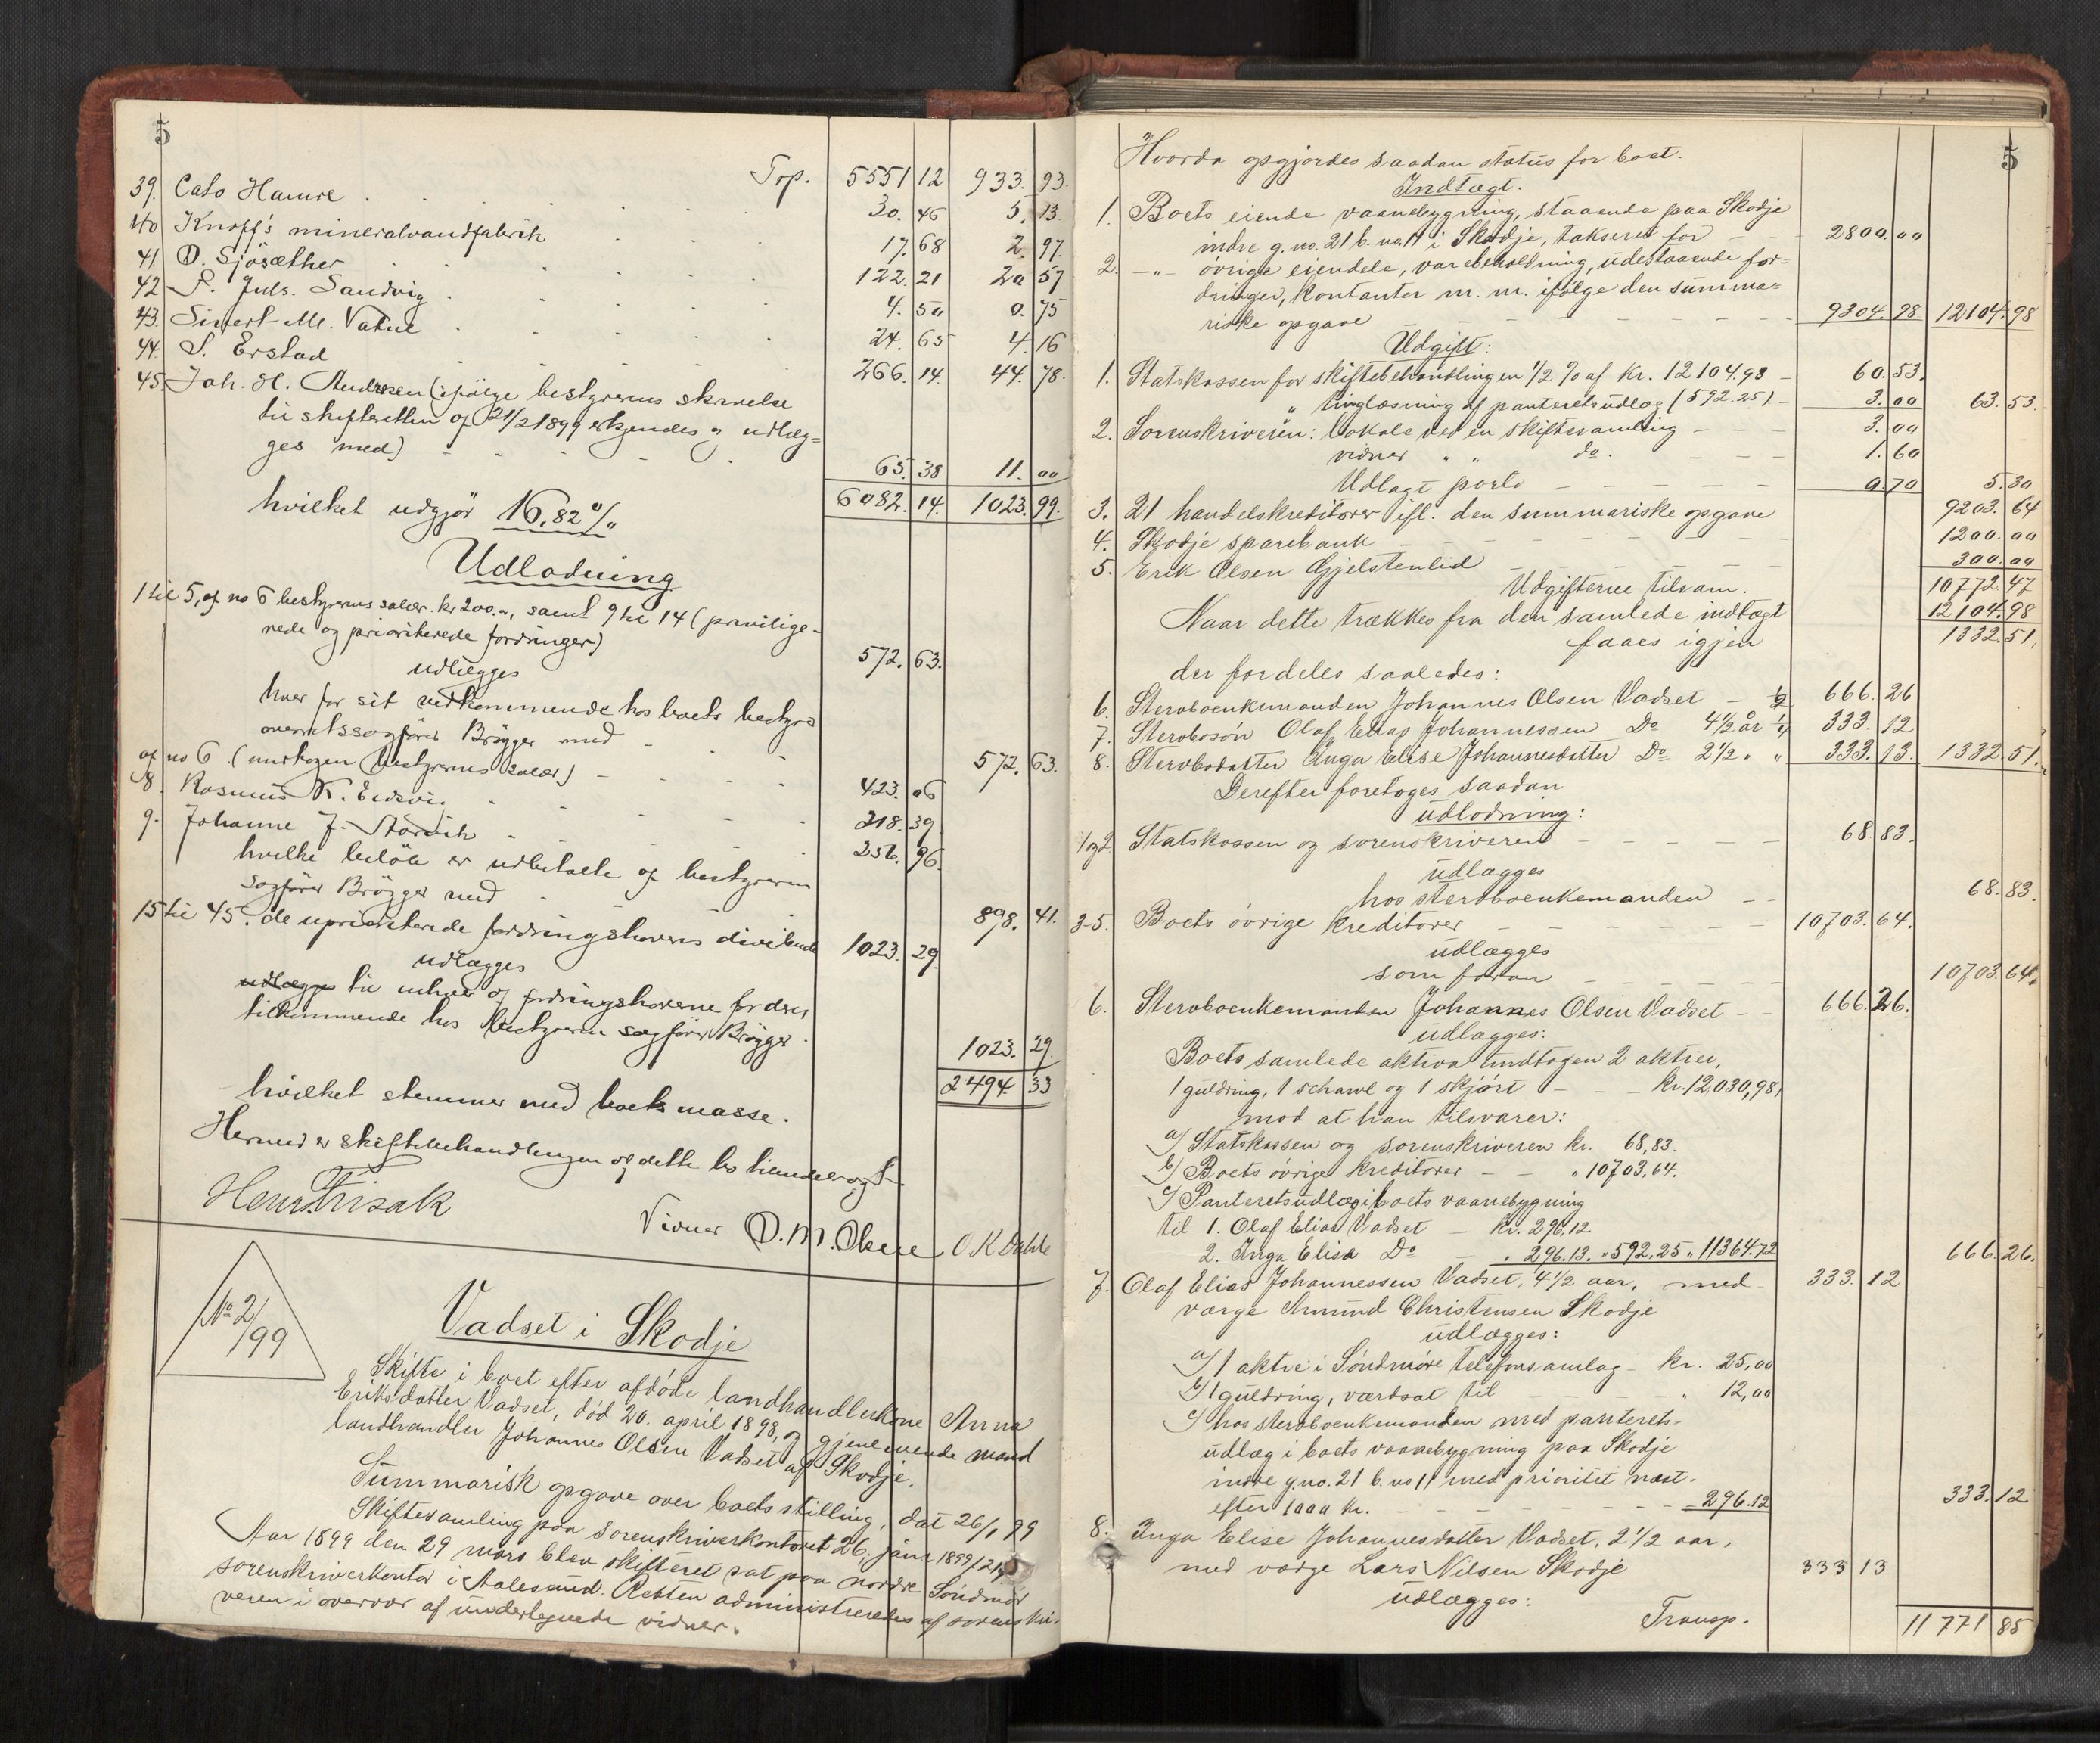 5
Trp. 5551 12 933. 93.
39. Cato Hamre 30. 46 5. 13.
40 Knoff's mineralvandfabrik 17. 68 2. 97.
41 O. Sjösæther 122. 21 20 57
42 P. Juls. Sandvig 4. 50 0. 75
43. Sivert M. Vatne 24. 65 4. 16
44. S. Erstad 266. 14. 44. 78.
45. Joh. H. Andresen (ifølge bestyrerens skrivelse
til skifteretten af 21/2 1899 erkjendes og udlæg=
ges med) 65. 38 11. 00
hvilket udgjör 16,82 % 6082. 14. 1023. 99.
Udlodning
1 til 5, af no 6 bestyrerens salær. kr 200.00, samt 9 til 14 (privilige-
rede og prioriterede fordringer) 572. 63.
udlægges
hver for sit vedkommende hos boets bestyrer
overretssagfører Brøgger med 572. 63.
af no 6 (undtagen bestyrerens salær) 423. 06
8. Rasmus K. Eidsvig 218. 39
9. Johanne J. 256. 96.
hvilke beløb er udbetalte af bestyreren
sagfører Brøgger med 898. 41.
15 til 45. de uprioriterede fordringshaveres dividende 1023. 29.
udlægges
udlægges til enhver af fordringshaverne for deres
tilkommende hos bestyreren sagfører Brøgger. 1023. 29.
2494. 33
hvilket stemmer med boets masse.
Hermed er skiftebehandlingen af dette bo tilendebragt.
Vidner O. M. O K Dahle
No 2/99
Vadset i Skodje
Skifte i boet efter afdøde landhandlerkone Anna
Eriksdatter Vadset, død 20. april 1898, og gjenlevende mand
landhandler Johannes Olsen Vadset af Skodje.
Summarisk opgave over boets stilling, dat 26/1 99
Skiftesamling paa sorenskriverkontoret 26. janr 1899
Aar 1899 den 29 mars blev skifteret sat paa nordre Søndmør
sorenskriverkontor i Aalesund. Retten administreredes af sorenskri-
veren i overvær af undertegnede vidner.
5
Hvorda opgjordes saadan status for boet.
Indtægt.
1. Boets eiende vaanebygning, staaende paa Skodje
indre g.no. 21 b. no. 11 i Skodje, takseret for 2800.00
2. —„— övrige eiendele, varebeholdning, udestaaende for=
dringer, kontanter m. m. ifølge den summa=
riske opgave 9304. 98 12104. 98
Udgift:
1. Statskassen for skiftebehandlingen 1/2 % af kr. 12104.98 60. 53.
„ tinglæsning af panteretsudlæg (592.25) 3. 00 63. 53.
2. Sorenskriveren: lokale ved en skiftesamling 3. 00
vidner „ „ do. 1. 60
Udlagt porto 0. 70 5. 30
3. 21 handelskreditorer ifl. den summariske opgave 9203. 64
4. Skodje sparebank 1200. 00
5. Erik Olsen Gjelstenlid 300. 00
Udgifterne tilsam. 10772. 47
Naar dette trækkes fra den samlede indtægt 12104. 98
faaes igjen 1332. 51.
der fordeles saaledes:
6. Sterboenkemanden Johannes Olsen Vadset — 1/2 666. 26
7. Sterbosön Olaf Elias Johannessen Do 4 1/2 år 1/4 333. 12
8. Sterbodatter Inga Elise Johannesdatter Do 2 1/2 „ „ 333. 13. 1332. 51.
Derefter foretoges saadan
udlodning:
1 og 2. Statskassen og sorenskriveren 68 83.
udlægges
hos sterboenkemanden 68. 83.
3-5. Boets övrige kreditorer 10703. 64.
udlægges
som foran 10703. 64.
6. Sterboenkemanden Johannes Olsen Vadset 666. 26.
udlægges:
Boets samlede aktiva undtagen 2 aktier,
1 guldring, 1 schawl og 1 skjørt — kr. 12,030,98,
mod at han tilsvarer:
a/ Statskassen og sorenskriveren kr. 68,83.
b/ Boets övrige kreditorer — „ 10703,64.
c/ Panteretsudlæg i boets vaanebygning
til 1. Olaf Elias Vadset — kr. 296,12
2. Inga Elise Do — „ 296.13. „ 592,25 „ 11364.72 666. 26.
7. Olaf Elias Johannessen Vadset, 4 1/2 aar, med 333. 12
værge Amund Christensen Skodje
udlægges:
a/ 1 aktie i Söndmöre telefonsamlag — kr. 25,00
b/ 1 guldring, værdsat til — „ 12,00
c/ hos sterboenkemanden med panterets-
udlæg i boets vaanebygning paa Skodje
indre g.no. 21 b. no 11 med prioritet næst.
efter 1000 kr. — 296.12 333. 12
8. Inga Elise Johannesdatter Vadset, 2 1/2 aar,
med værge Lars Nilsen Skodje 333 13
udlægges:
Transp. 11771 85